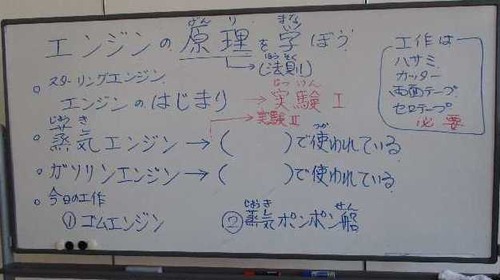 エンジンの原理を学ぼう
げんり
まな
(法則)
ほうそく
スターリングエンジン
エンジンのはじまり→実験I
じっけん
実験II
蒸気エンジン→( )で使われている
じょうき
つか
ガソリンエンジン→( )で使われている
今日の工作
①ゴムエンジン ②蒸気ポンポン船
じょうき
せん
工作は
ハサミ
カッター
両面テープ
セロテープ
必要